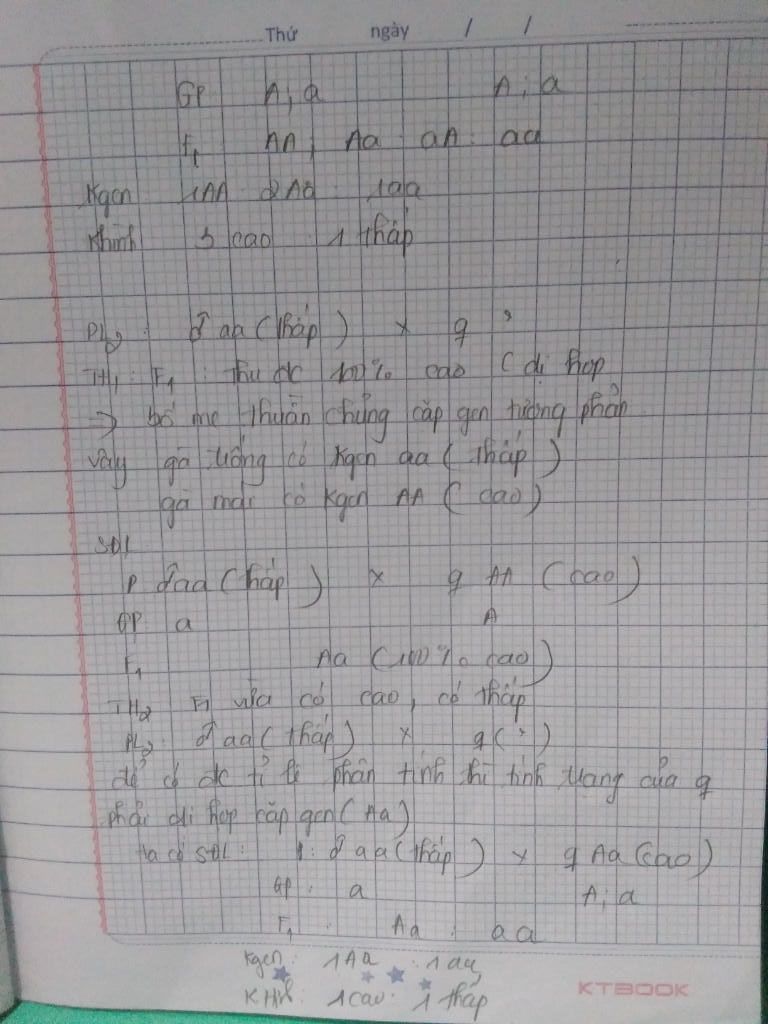 Thứ ngày / /
GP A ; a A ; a
F1 AA ; Aa : aA : aa
Kgen 1AA 2Aa : 1aa
Khình 3 cao : 1 thấp
PL2 : ♂ aa (thấp) x ♀ ?
TH1 : F1 : thu đc 100% cao ( dị hợp
=> bố mẹ thuần chủng cặp gen tương phản
Vậy gà trống có Kgen aa ( thấp )
gà mái có Kgen AA ( cao )
SĐL
P ♂aa (thấp) x ♀ AA (cao)
GP a A
F1 Aa (100% cao)
TH2 F1 vừa có cao, có thấp
PL2 : ♂ aa (thấp) x ♀ (?)
để có đc tỉ lệ phân tính thì tính trạng của ♀
phải dị hợp cặp gen (Aa)
ta có SĐL : P : ♂ aa (thấp) x ♀ Aa (cao)
GP : a A ; a
F1 : Aa : aa
Kgen : 1Aa : 1aa
KHình : 1cao : 1 thấp
KTBOOK